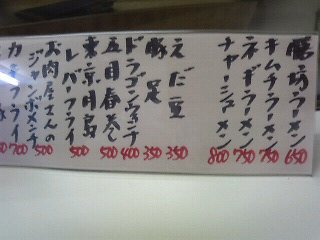 膳坊ラーメン 650
キムチラーメン 750
ネギラーメン 750
チャーシューメン 800
えだ豆 350
豚足 350
ドラゴンウインナ 400
五目春巻 500
東京月島
レバーフライ 500
お肉屋さんの
ジャンボメンチ 500
フライ 700